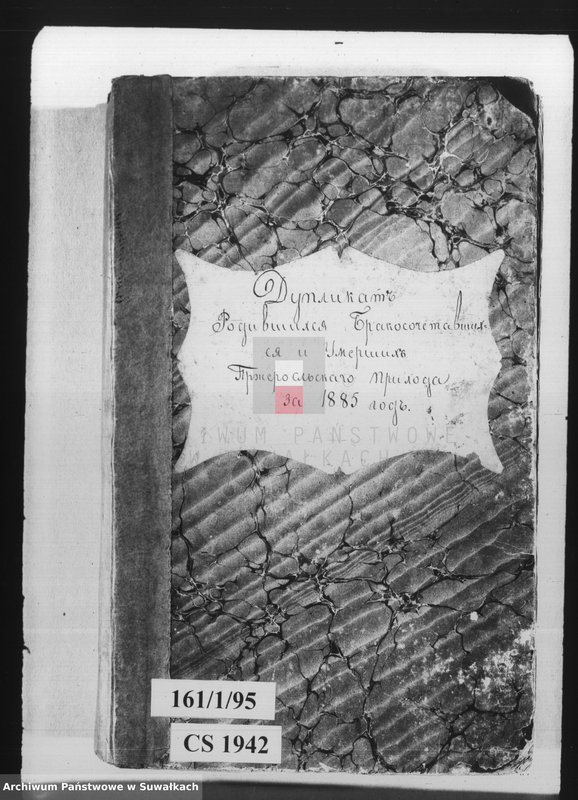 Дупликатъ
Родившихся Бракосочетавших-
ся и Умершихъ
Пржеросльскаго прихода
за 1885 годъ.
IWUM PAŃSTWOWE
W SUWAŁKACH
161/1/95
CS 1942
Archiwum Państwowe w Suwałkach